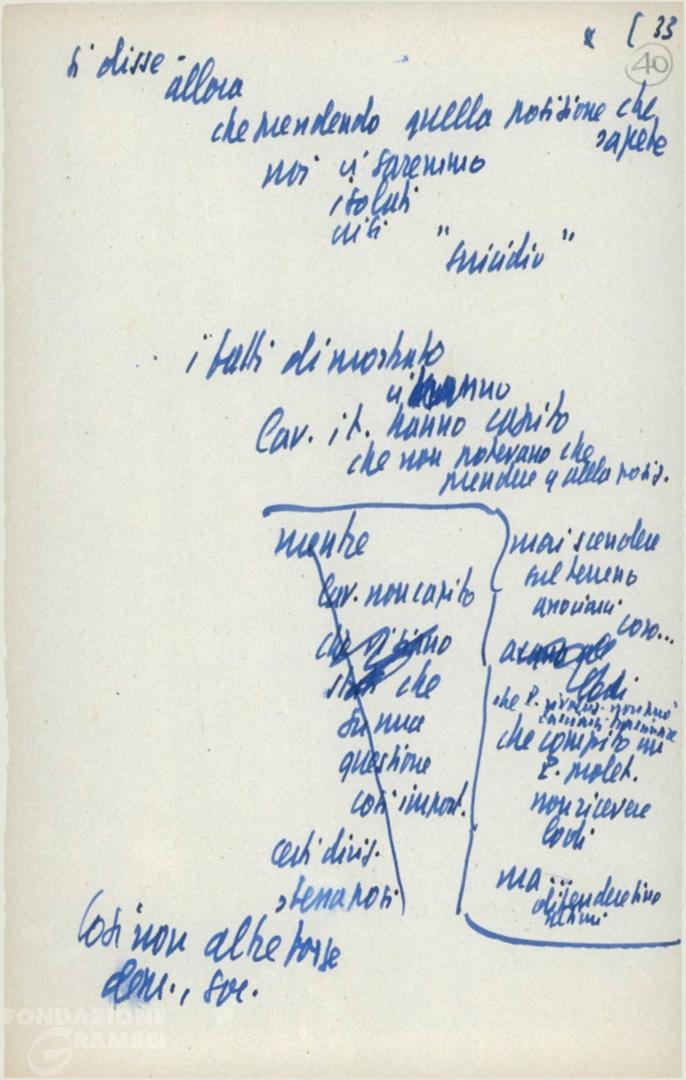 * [ 33
40
si disse -
allora
che prendendo quella posizione che
sapete
noi ci saremmo
isolati
crisi
"suicidio"
i fatti dimostrato
ci hanno
Lav. it. hanno capito
che non potevano che
prendere quella posiz.
mentre
Lav. non capito
che
su una
questione
così import.
certi diris.
stena posi
mai scendere
sul terreno
coro...
Lodi
che P. rivoluz. non può
che compito un
P. prolet.
non ricevere
lodi
ma...
difendere fino
Così non altre forze
dem., soc.
FONDAZIONE
GRAMSCI